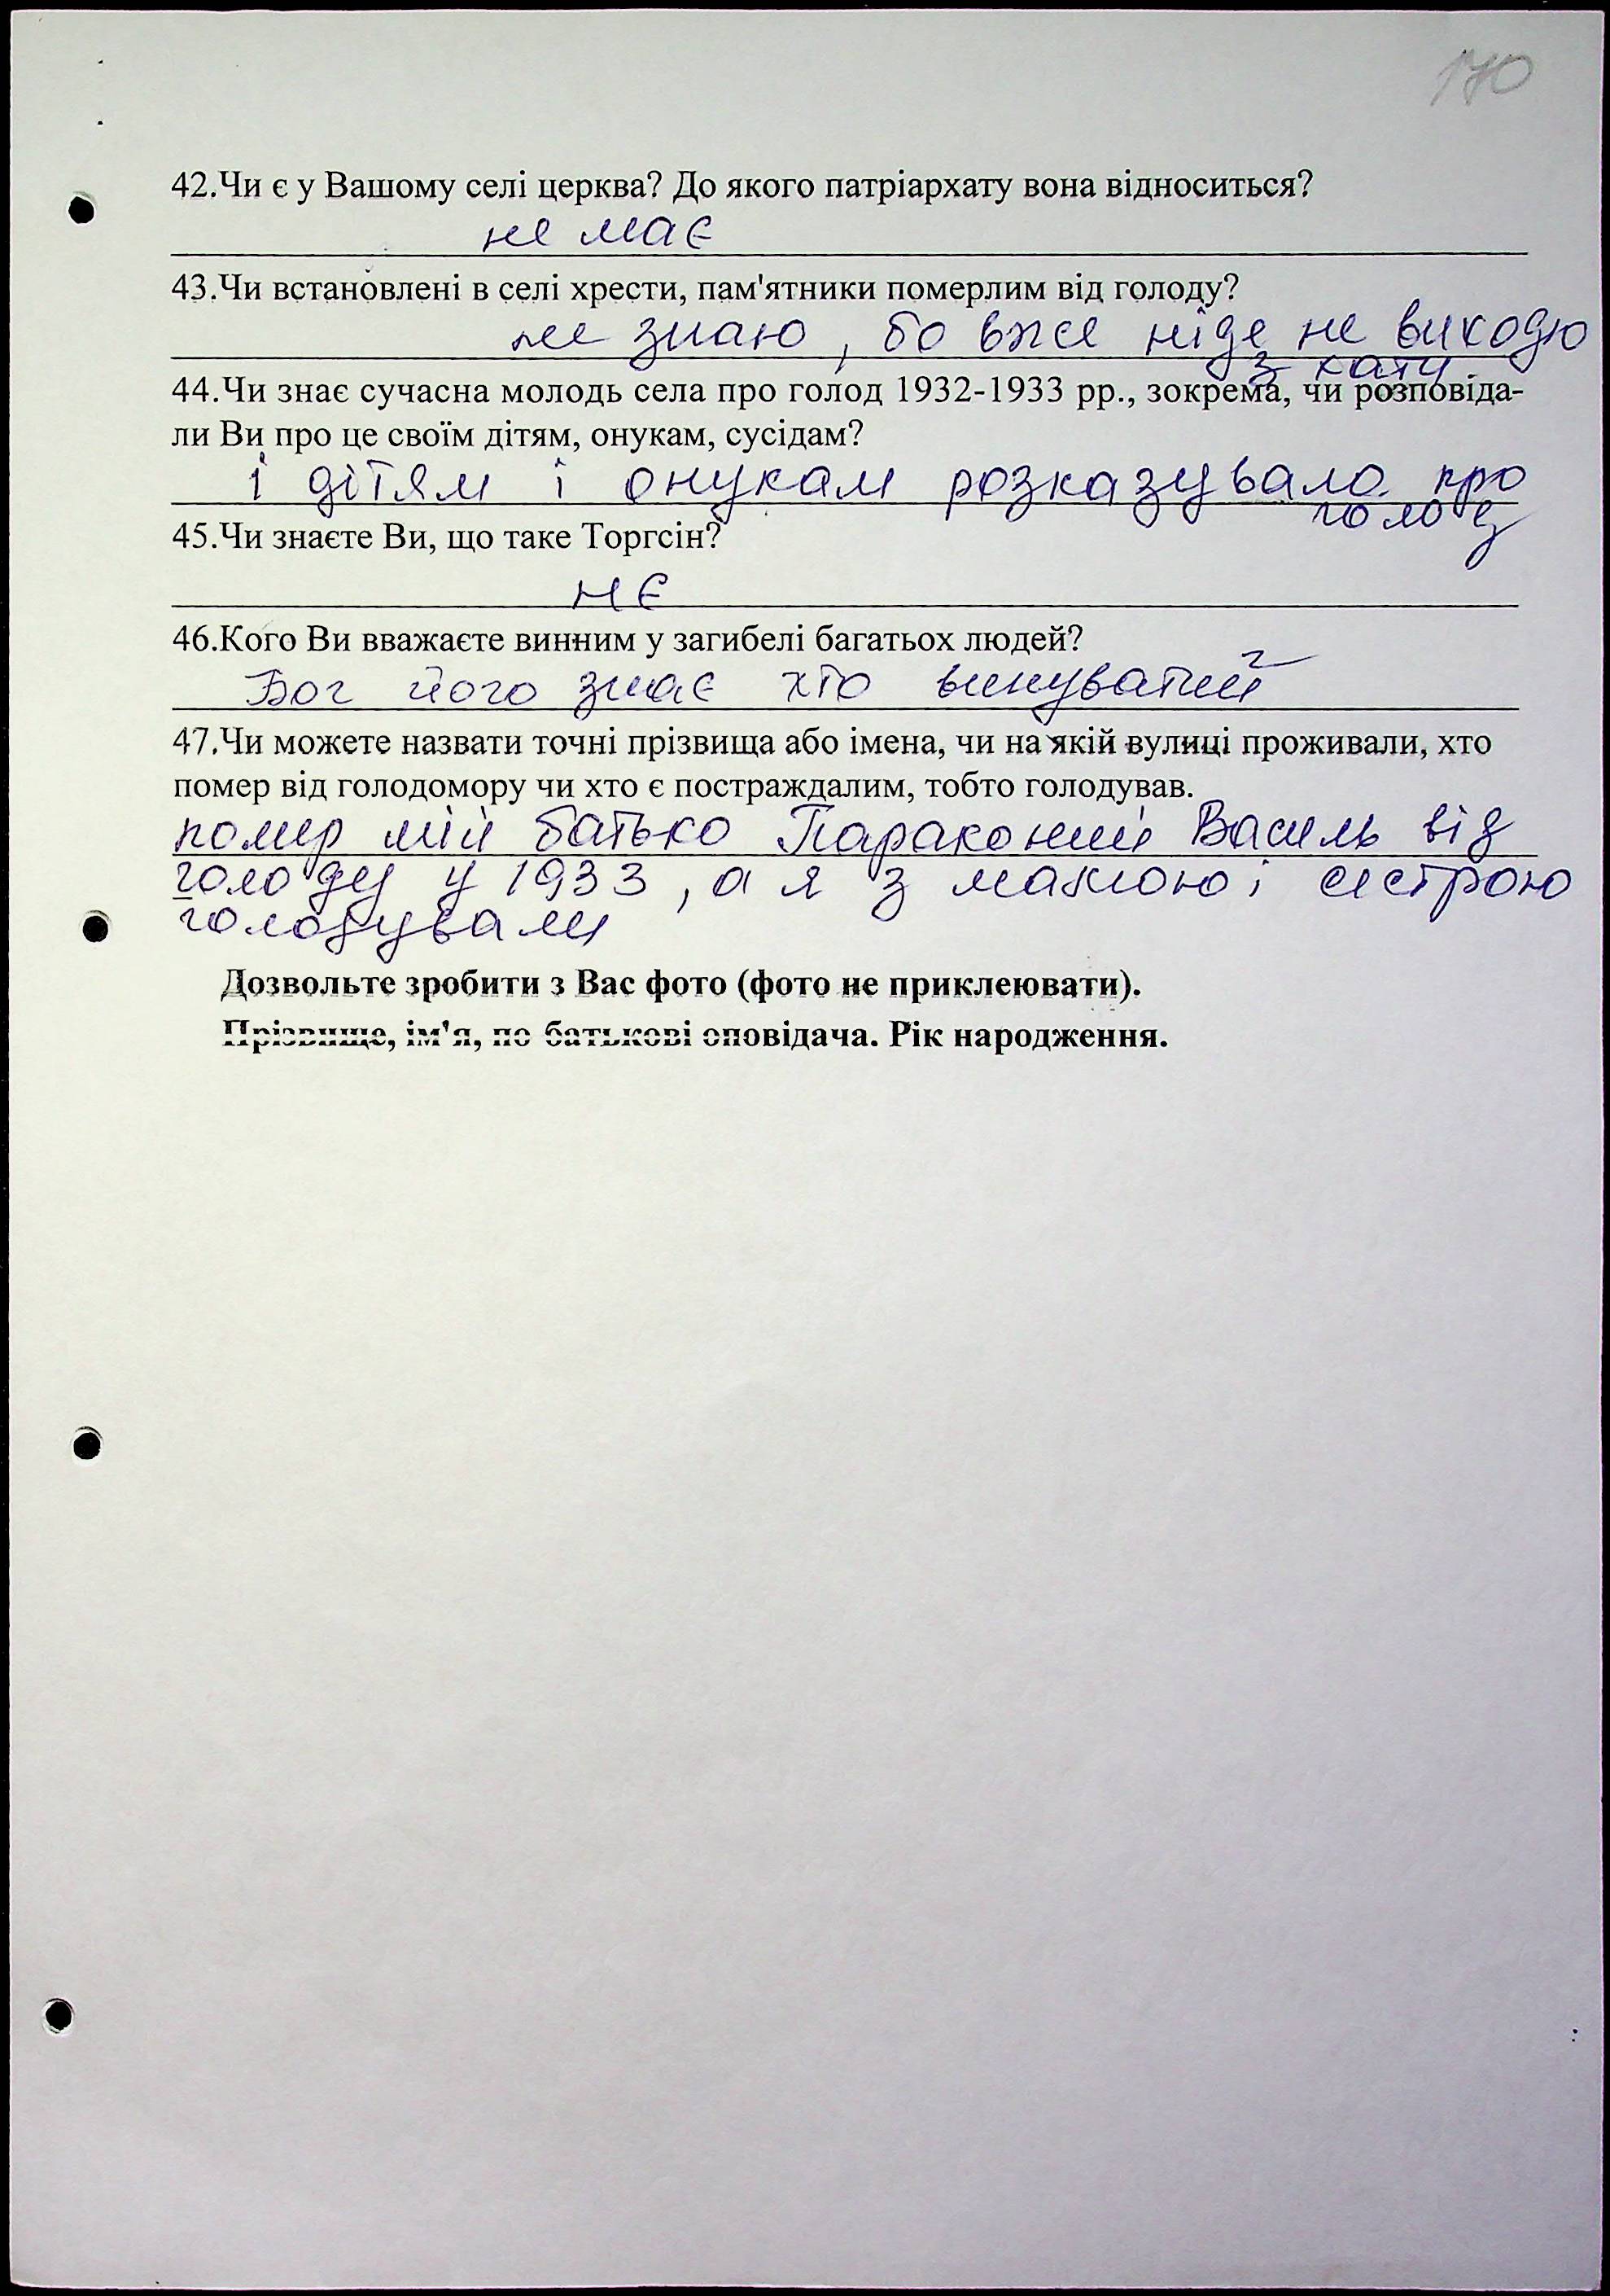 170
42.Чи є у Вашому селі церква? До якого патріархату вона відноситься?
не має
43.Чи встановлені в селі хрести, пам'ятники померлим від голоду?
не знаю, бо вже ніде не виходю
з хати
44.Чи знає сучасна молодь села про голод 1932-1933 рр., зокрема, чи розповіда-
ли Ви про це своїм дітям, онукам, сусідам?
і дітям і онукам розказувала про
голод
45.Чи знаєте Ви, що таке Торгсін?
нє
46.Кого Ви вважаєте винним у загибелі багатьох людей?
Бог його знає хто винуватий
47.Чи можете назвати точні прізвища або імена, чи на якій вулиці проживали, хто
помер від голодомору чи хто є постраждалим, тобто голодував.
помер мій батько Параконний Василь від
голоду у 1933, а я з мамою і сестрою
голодували
Дозвольте зробити з Вас фото (фото не приклеювати).
Прізвище, ім'я, по батькові оповідача. Рік народження.